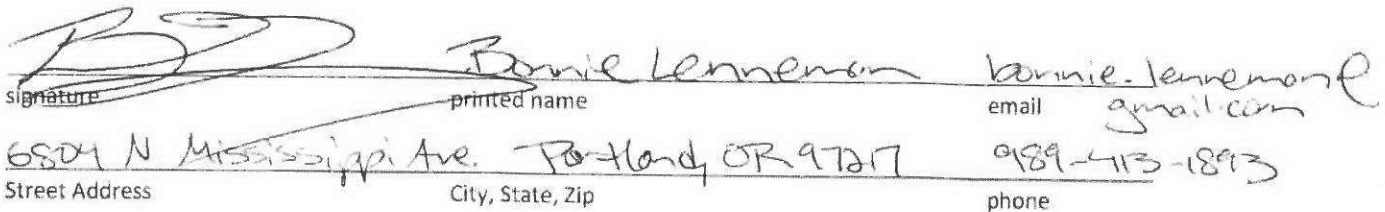 Bonnie Lenneman bonnie.lenneman@
signature printed name email gmail.com
6804 N Mississippi Ave. Portland, OR 97217 989-413-1893
Street Address City, State, Zip phone